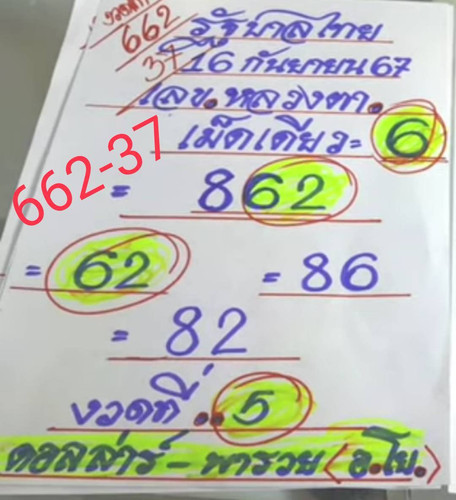 662
37
รัฐบาลไทย
ที่ 16 กันยายน 67
เลข.หลวงตา.
เม็ดเดียว= 6
662-37
= 862
= 62 = 86
= 82
งวดที่..5
ดอลล่าร์-พารวย(อ.โย.)